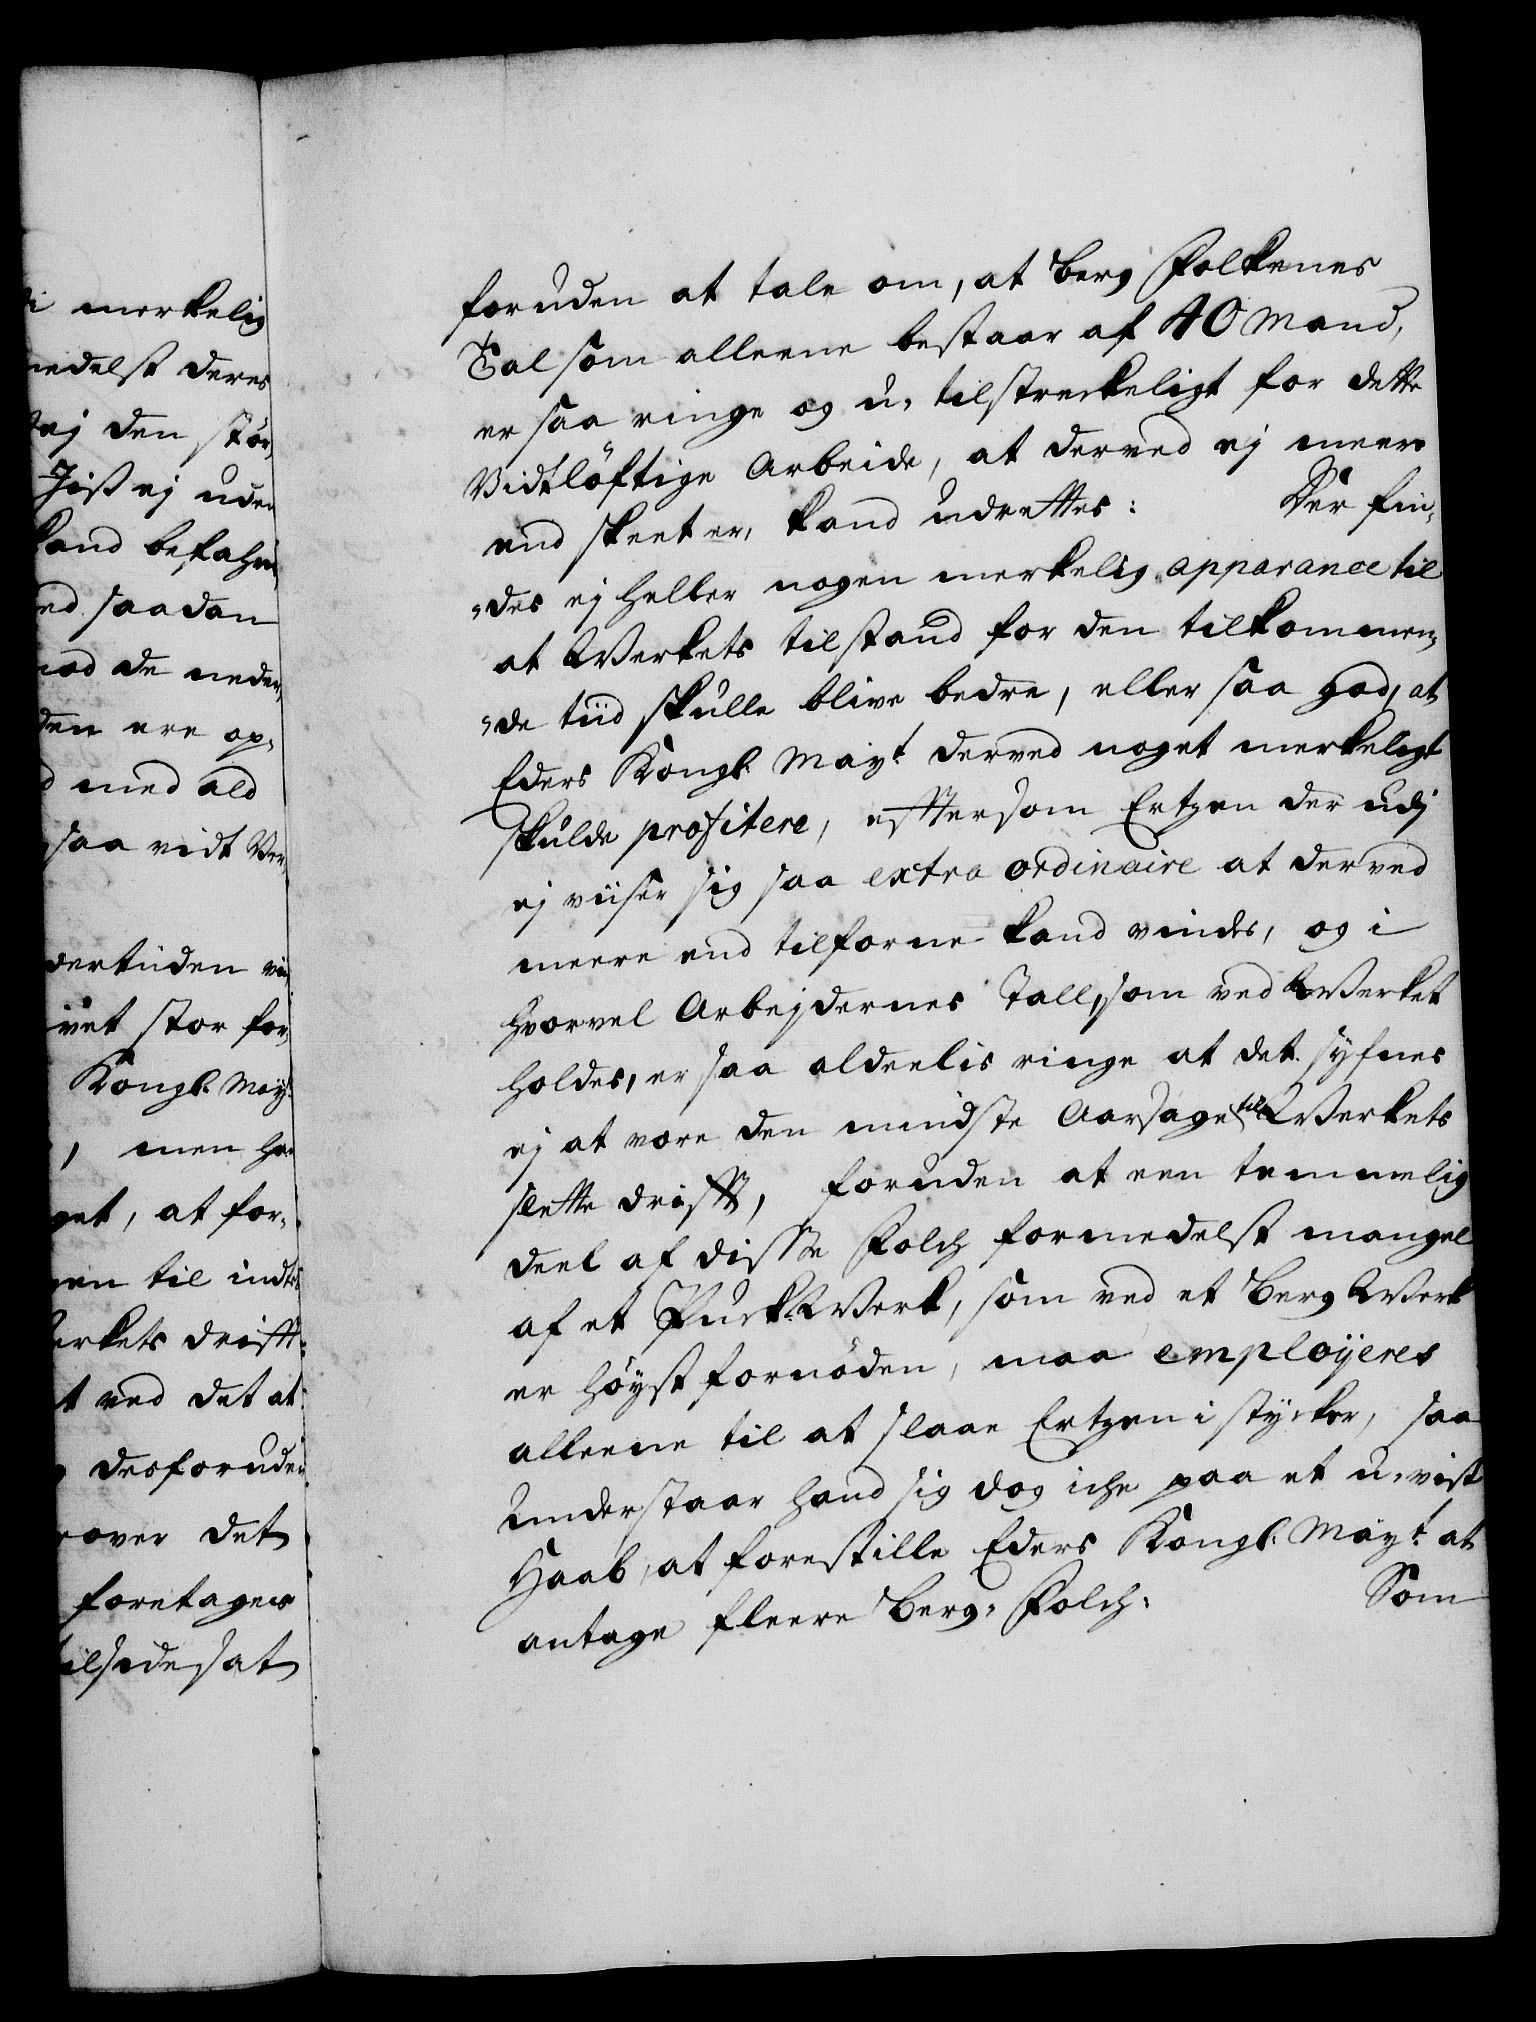 i merkelig
medelst deres
ej den stör,
Jist ej uden
kand befahre
ed saadan
mod de neder,
den ere op,
d med ald
saa vidt Ver,
dertiden vii
ivet stor for,
Kongl. May:
, men har
get, at for,
gen til indtil
erkets drifft:
t ved det at
desforuden
over det
foretages
tilsidesat
foruden at tale om, at Berg Folkenes
Tal som alleene bestaar af 40 Mand,
er saa ringe og u, tilstreckeligt for dette
Vidtlöftige Arbeide, at derved ej meere
end skeet er, kand udrettes: Der fin,
,des ej heller nogen merkelig apparance til
at Werkets tilstand for den tilkommen,
,de tiid skulle blive bedre, eller saa god, at
Eders Kongl. Mayt. derved noget merkeligt
skulde profitere, efftersom Ertzen der udj
ej viiser sig saa extra ordinaire at derved
meere end tilforne kand vindes, og i
hvorvel Arbejdernes Tall, som ved Werket
holdes, er saa aldeelis ringe at det syfnes
ej at være den mindste Aarsage til Werkets
slette drifft, foruden at een temmelig
deel af disse Folch formedelst mangel
af et PuckWerk, som ved et Berg Werk
er höyst fornöden, maa employeres
alleene til at slaae Ertzen i stycker, saa
understaar hand sig dog iche paa et u, vist
Haab, at forestille Eders Kongl. Mayt. at
antage fleere Berg, Folch: Som